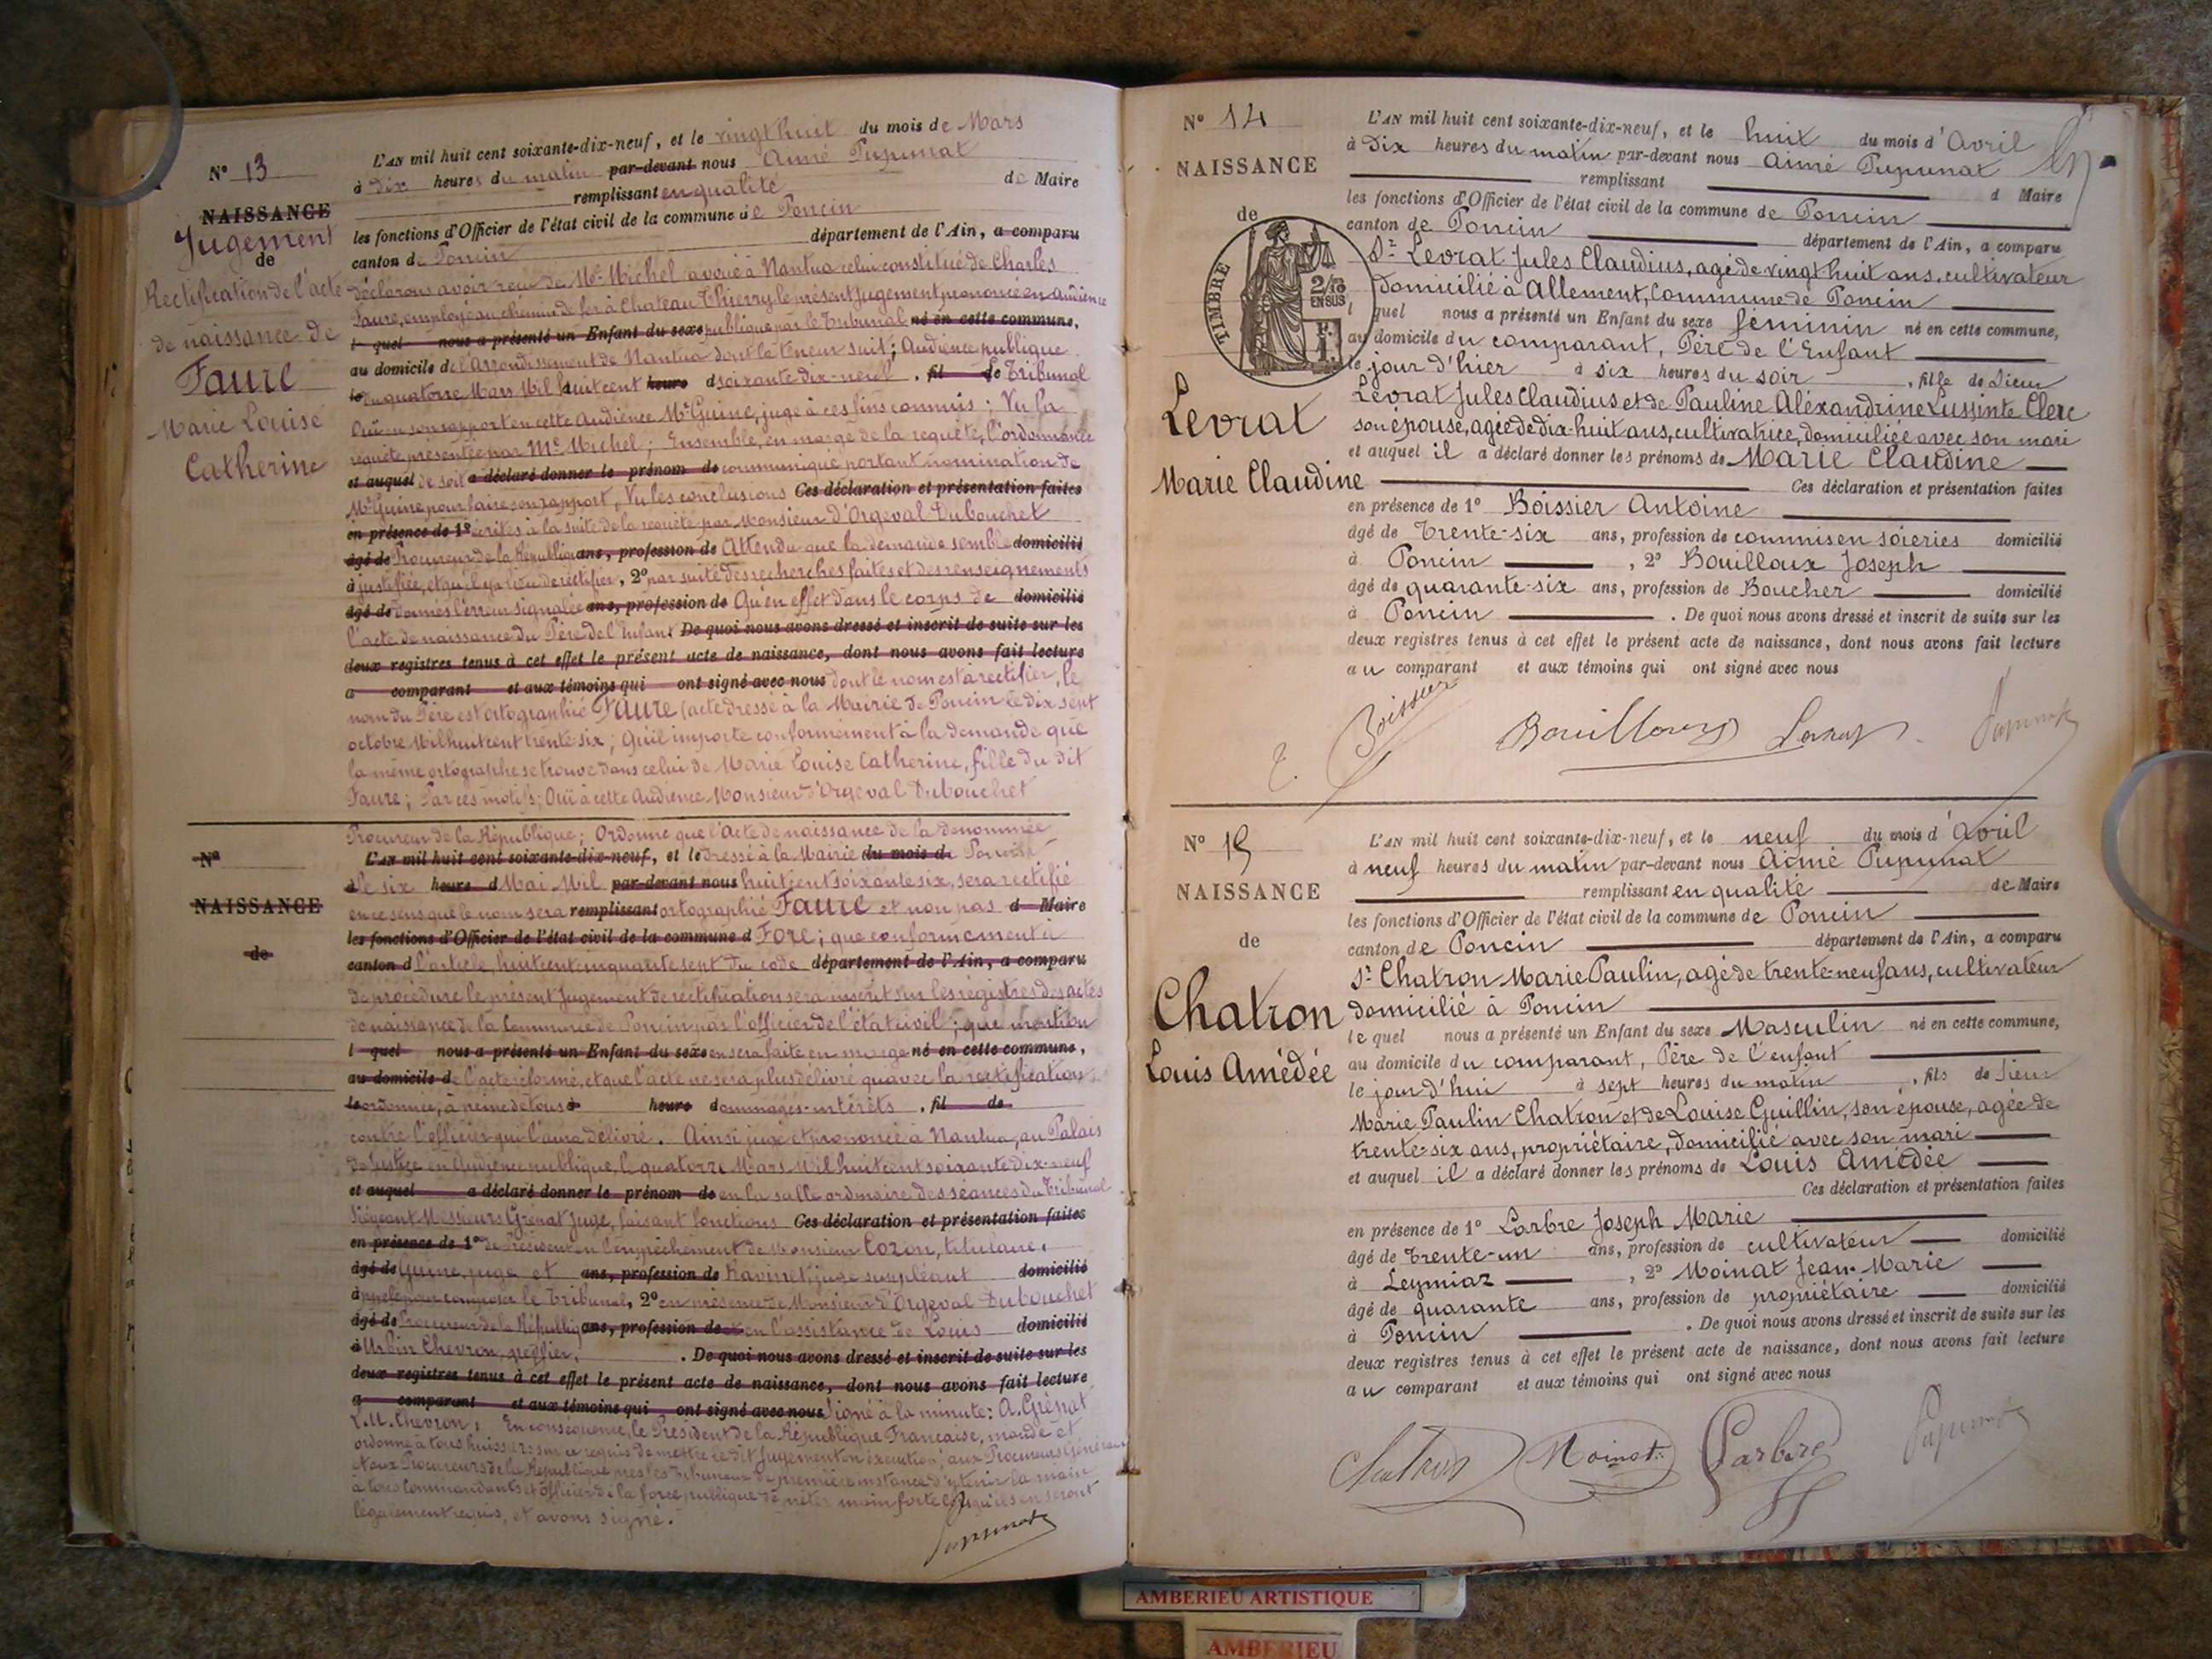 N° 13
NAISSANCE
Jugement
de
Rectification de l'acte
de naissance de
Faure
Marie Louise
Catherine
L'AN mil huit cent soixante-dix-neuf, et le vingt huit du mois de Mars
à dix heures du matin par-devant nous Aimé Pupunat
remplissant en qualité de Maire
les fonctions d'Officier de l'état civil de la commune de Poncin
canton de Poncin département de l'Ain, a comparu
Déclarons avoir reçu de Me Michel avoué à Nantua celui constitué de Charles
Faure, employé au chemin de fer à Chateau Thierry, le présent Jugement prononcé en Audience
l quel nous a présenté un Enfant du sexe publique par le Tribunal né en cette commune,
au domicile de l'Arrondissement de Nantua dont la teneur suit; Audience publique
le du quatorze Mars Mil huit cent heure d soixante-dix-neuf, fil de Tribunal
Ouï en son rapport en cette Audience Mr Guine, juge à ces fins commis; Vu la
requête présentée par Me Michel; Ensemble, en marge de la requête, l'ordonnance
et auquel de soit a déclaré donner le prénom de communiqué portant nomination de
Mr Guine pour faire son rapport, Vu les conclusions Ces déclaration et présentation faites
en présence de 1° écrites à la suite de la requête par Monsieur d'Orgeval Dubouchet
âgé de Procureur de la République ans, profession de Attendu que la demande semble domicilié
à justifiée, et qu'il y a lieu de rectifier, 2° par suite des recherches faites et des renseignements
âgé de donnés l'erreur signalée ans, profession de Qu'en effet dans le corps de domicilié
l'acte de naissance du Père de l'Enfant De quoi nous avons dressé et inscrit de suite sur les
deux registres tenus à cet effet le présent acte de naissance, dont nous avons fait lecture
a comparant et aux témoins qui ont signé avec nous dont le nom est à rectifier, le
nom du Père est ortographié Faure (acte dressé à la Mairie de Poncin le dix sept
octobre Mil huit cent trente six; Qu'il importe conformément à la demande que
la même ortographe se trouve dans celui de Marie Louise Catherine, fille du dit
Faure; Par ces motifs; Ouï à cette Audience Monsieur d'Orgeval Dubouchet
N°
NAISSANCE
de
Procureur de la République; Ordonne que l'Acte de naissance de la dénommée
L'AN mil huit cent soixante-dix-neuf, et le dressé à la Mairie du mois de Poncin
à le six heure d Mai Mil par-devant nous huit cent soixante six, sera rectifié
en ce sens que le nom sera remplissant ortographié Faure et non pas d Maire
les fonctions d'Officier de l'état civil de la commune d Fore; que conformément à
canton d l'article huit cent cinquante sept du code département de l'Ain, a comparu
de procédure le présent Jugement de rectification sera inscrit sur les registres des actes
de naissance de la Commune de Poncin par l'officier de l'état civil; que mention
l quel nous a présenté un Enfant du sexe en sera faite en marge né en cette commune,
au domicile de l'acte réformé, et que l'acte ne sera plus délivré qu'avec la rectification
le ordonnée, à peine de tous à heure dommages-intérêts, fil de
contre l'officier qui l'aura délivré. Ainsi jugé et prononcé à Nantua, au Palais
de Justice en Audience publique, le quatorze Mars Mil huit cent soixante dix-neuf
et auquel a déclaré donner le prénom de en la salle ordinaire des séances du Tribunal
Siégeant Messieurs Grenat Juge, faisant fonctions Ces déclaration et présentation faites
en présence de 1° de Président en l'empêchement de Monsieur Cozon, titulaire,
âgé de Guine, juge et ans, profession de Ravinet, juge suppléant domicilié
à appelé pour composer le Tribunal, 2° en présence de Monsieur d'Orgeval Dubouchet
âgé de Procureur de la République ans, profession de en l'assistance de Louis domicilié
à Urbin Chevron, greffier, . De quoi nous avons dressé et inscrit de suite sur les
deux registres tenus à cet effet le présent acte de naissance, dont nous avons fait lecture
a comparant et aux témoins qui ont signé avec nous Signé à la minute: A. Grénat
L. U. Chevron, En conséquence, le Président de la République Française, mande et
ordonne à tous huissiers sur ce requis de mettre le dit Jugement en exécution; aux Procureurs Généraux
et aux Procureurs de la République près les Tribunaux de première instance d'y tenir la main
à tous Commandants et officiers de la force publique de prêter main forte lorsqu'ils en seront
légalement requis, et avons signé.
Pupunat
N° 14
NAISSANCE
de
TIMBRE
2/10
EN SUS
Levrat
Marie Claudine
L'AN mil huit cent soixante-dix-neuf, et le huit du mois d'Avril
à Dix heures du matin par-devant nous Aimé Pupunat
remplissant d Maire
les fonctions d'Officier de l'état civil de la commune de Poncin
canton de Poncin département de l'Ain, a comparu
Sr Levrat Jules Claudius, agé de vingt huit ans, cultivateur
Domicilié à Allement, Commune de Poncin
l quel nous a présenté un Enfant du sexe féminin né en cette commune,
au domicile du comparant, Père de l'Enfant
le jour d'hier à six heures du soir, fille de Sieur
Levrat Jules Claudius et de Pauline Aléxandrine Lussinte Clerc
son épouse, agée de dix-huit ans, cultivatrice, domiciliée avec son mari
et auquel il a déclaré donner les prénoms de Marie Claudine
Ces déclaration et présentation faites
en présence de 1° Boissier Antoine
âgé de Trente-six ans, profession de commis en soieries domicilié
à Poncin, 2° Bouilloux Joseph
âgé de quarante-six ans, profession de Boucher domicilié
à Poncin. De quoi nous avons dressé et inscrit de suite sur les
deux registres tenus à cet effet le présent acte de naissance, dont nous avons fait lecture
au comparant et aux témoins qui ont signé avec nous
Boissier Bouilloux Levrat Pupunat
N° 15
NAISSANCE
de
Chatron
Louis Amédée
L'AN mil huit cent soixante-dix-neuf, et le neuf du mois d'Avril
à neuf heures du matin par-devant nous Aimé Pupunat
remplissant en qualité de Maire
les fonctions d'Officier de l'état civil de la commune de Poncin
canton de Poncin département de l'Ain, a comparu
Sr Chatron Marie Paulin, agé de trente-neuf ans, cultivateur
domicilié à Poncin
le quel nous a présenté un Enfant du sexe Masculin né en cette commune,
au domicile du comparant, Père de l'enfant
le jour d'hui à sept heures du matin, fils de Sieur
Marie Paulin Chatron et de Louise Guillin, son épouse, agée de
trente-six ans, propriétaire, domicilié avec son mari
et auquel il a déclaré donner les prénoms de Louis Amédée
Ces déclaration et présentation faites
en présence de 1° Larbre Joseph Marie
âgé de Trente-un ans, profession de cultivateur domicilié
à Leymiaz, 2° Moinat Jean-Marie
âgé de quarante ans, profession de propriétaire domicilié
à Poncin. De quoi nous avons dressé et inscrit de suite sur les
deux registres tenus à cet effet le présent acte de naissance, dont nous avons fait lecture
au comparant et aux témoins qui ont signé avec nous
Chatron Moinat Larbre Pupunat
AMBERIEU ARTISTIQUE
AMBERIEU